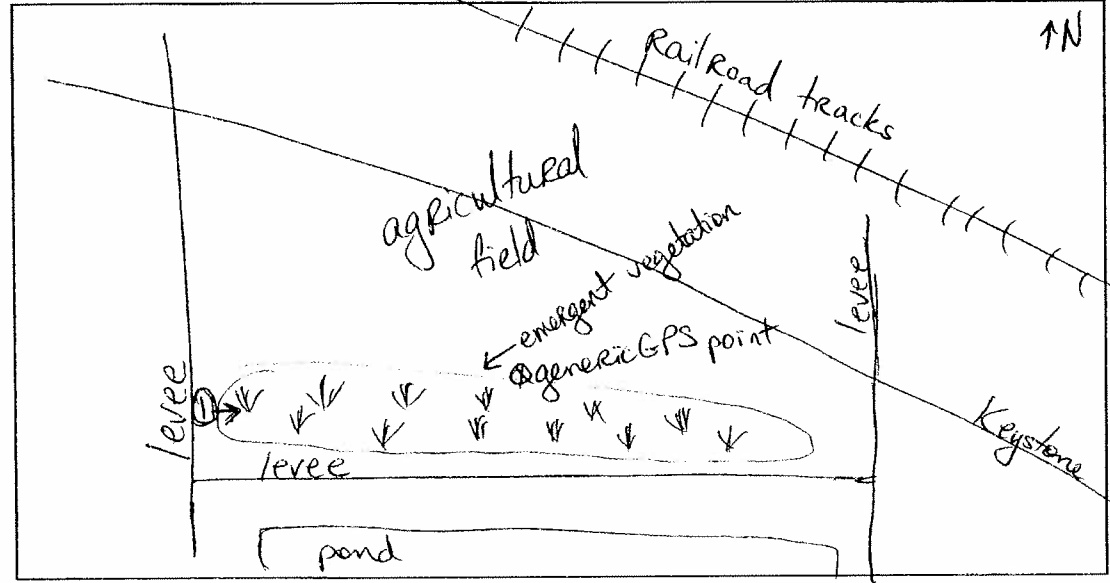 ↑N
RailRoad tracks
agricultural
field
emergent vegetation
genericGPS point
levee
levee
1
levee
Keystone
pond